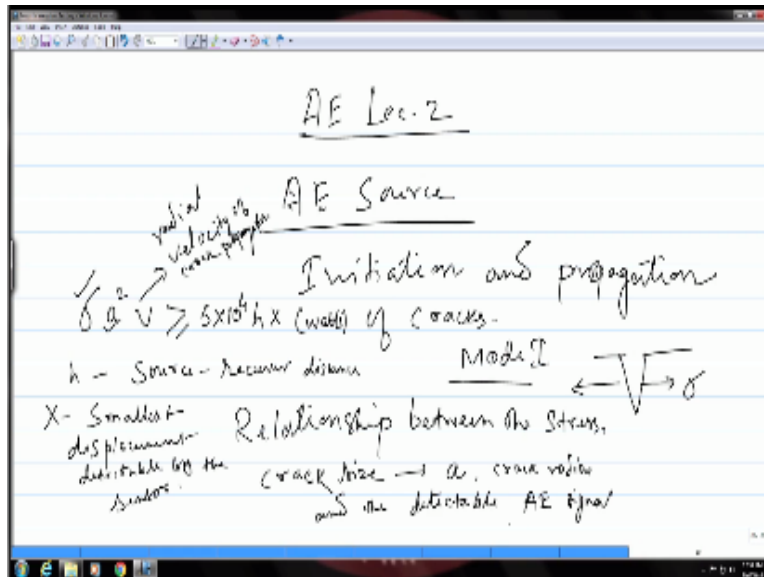 AE Lec. 2
AE Source
radial
velocity of
crack propagatn
Initiation and propagation
σ a² v ≥ 5×10⁴ h x (watts) of cracks.
h - Source - receiver distance
Mode I
σ
x - Smallest
displacement
detectable by the
sensor.
Relationship between the stress,
crack size → a, crack radius
and the detectable AE signal